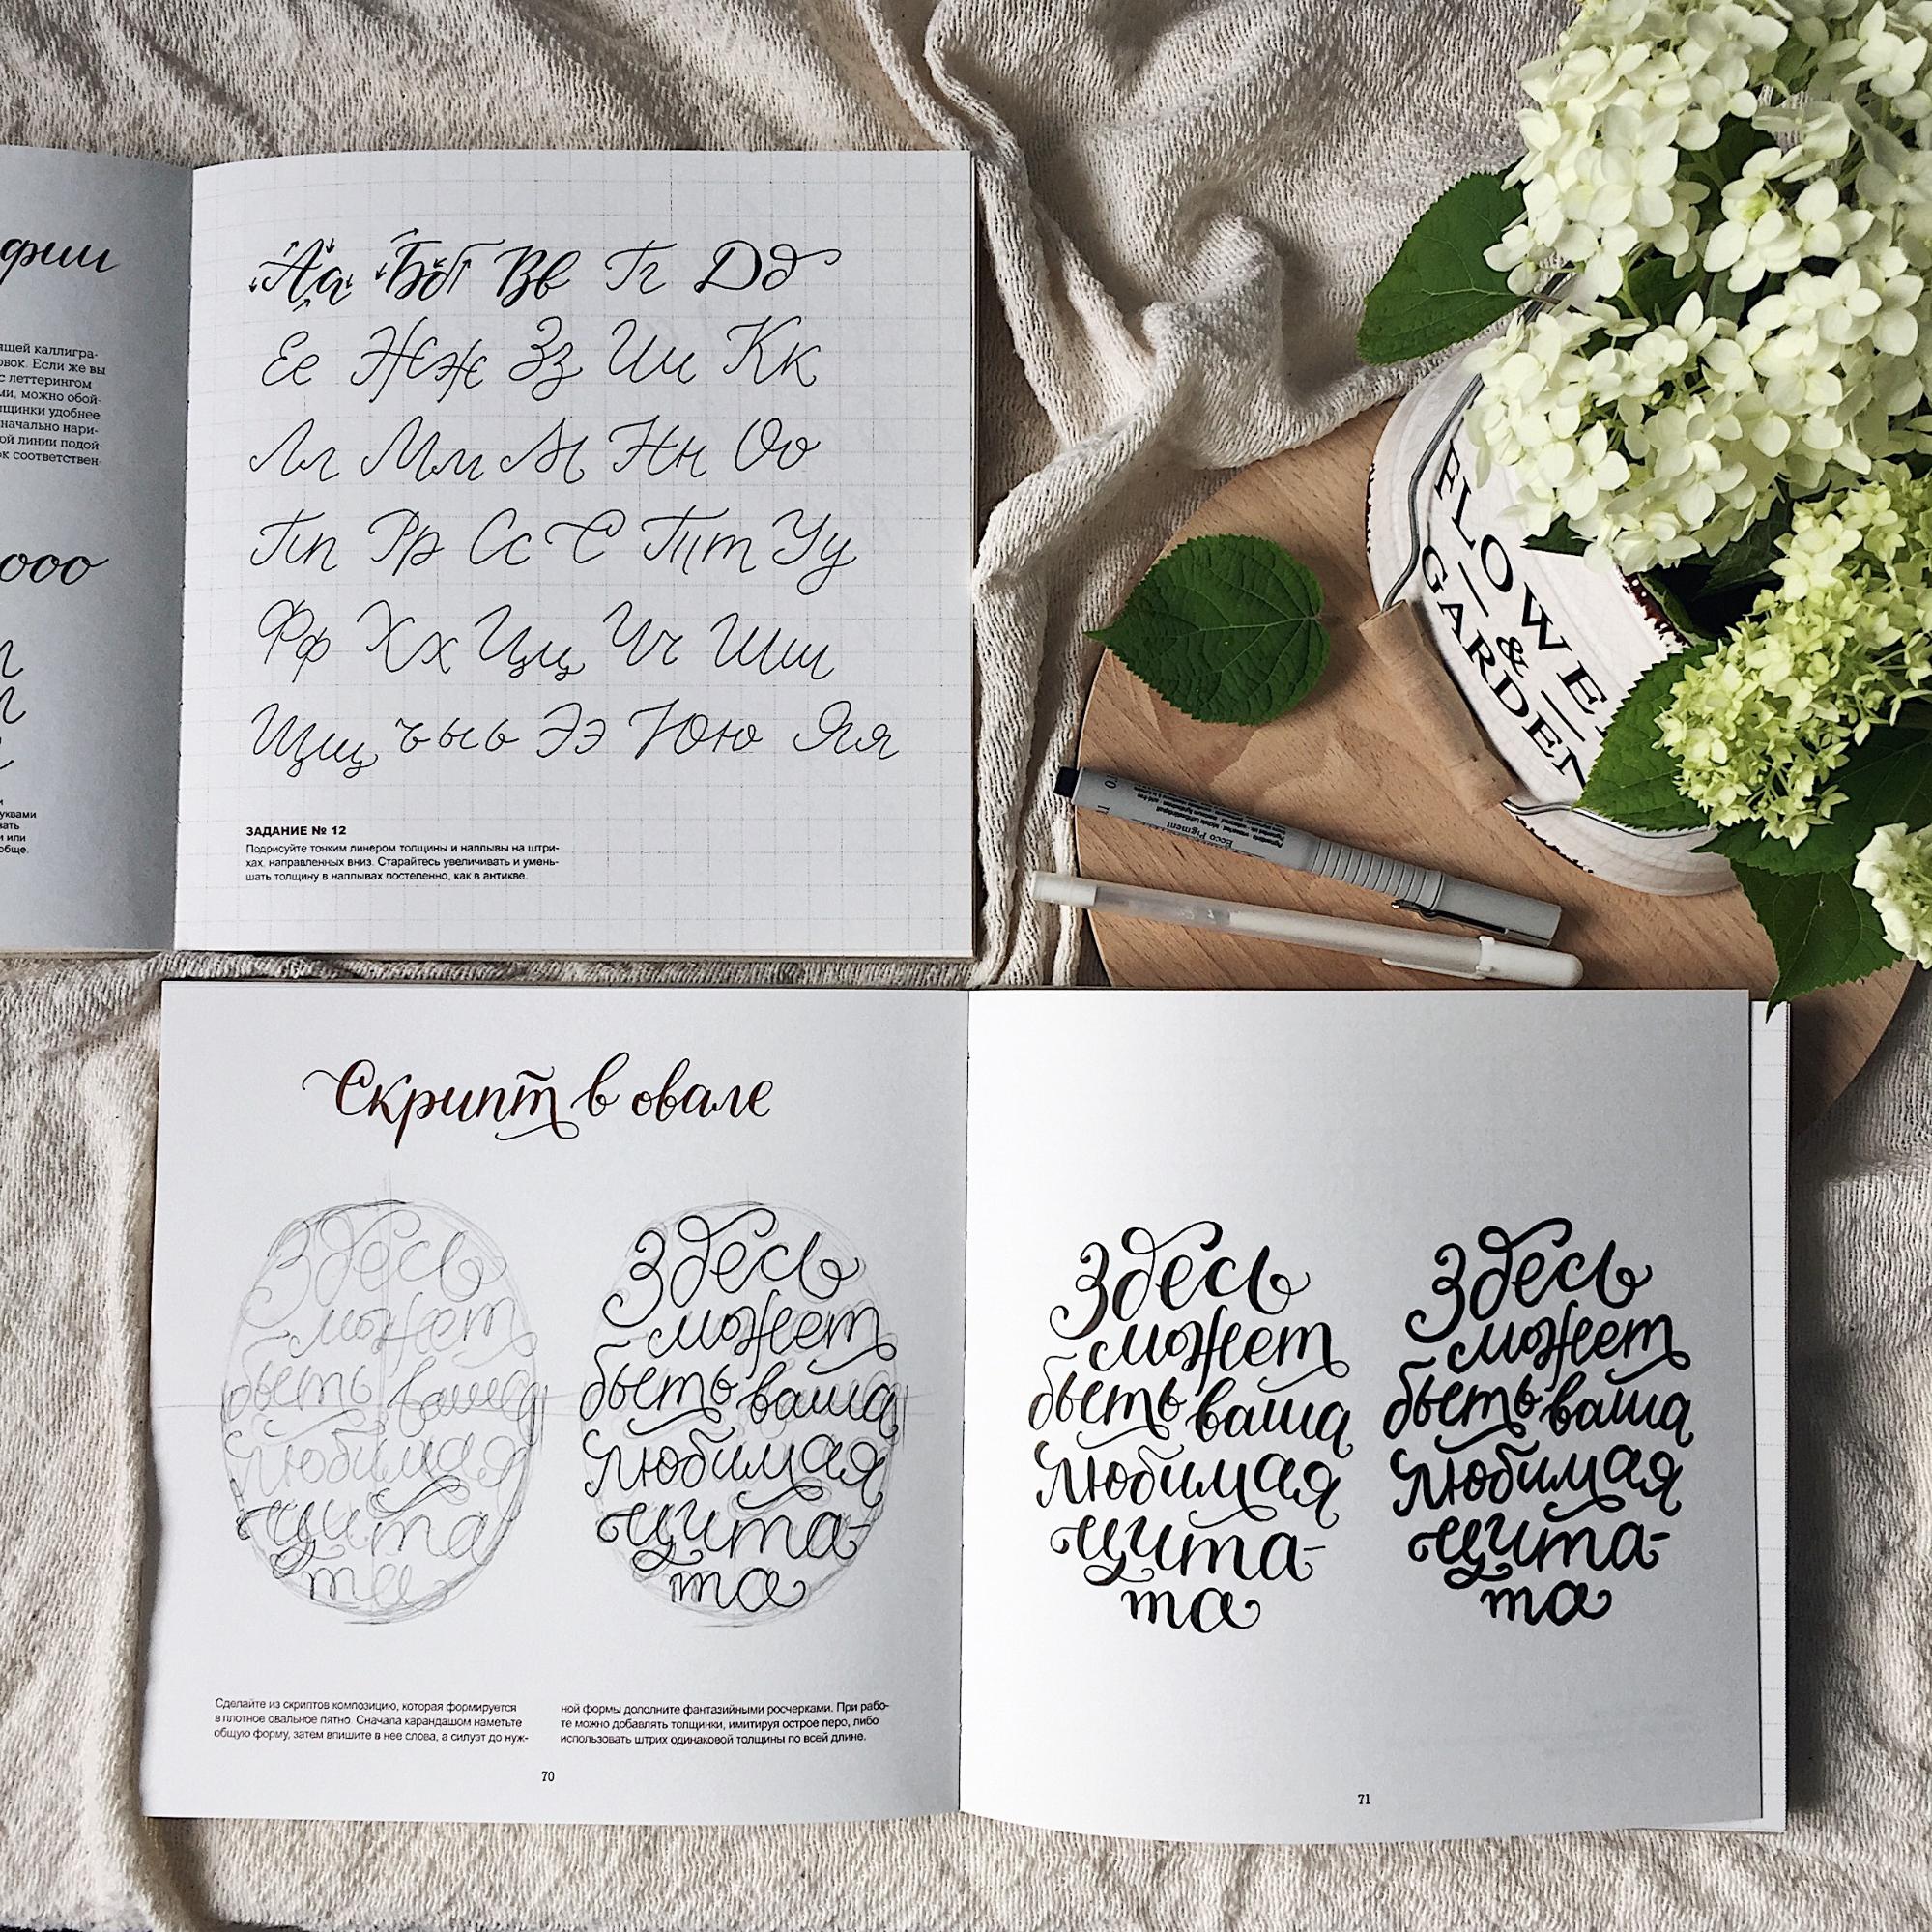 фии
ящей каллигра-
овок. Если же вы
с леттерингом
ми, можно обой-
лщинки удобнее
начально нари-
ой линии подой-
ок соответствен-
ооо
уквами
вать
и или
обще.
Аа Бб Вв Гг Дд
Ее Жж Зз Ии Кк
Лл Мм М Нн Оо
Пп Рр Сс С Тт Уу
Фф Хх Цц Чч Шш
Щщ ъ ы ь Ээ Юю Яя
ЗАДАНИЕ № 12
Подрисуйте тонким линером толщины и наплывы на штри-
хах, направленных вниз. Старайтесь увеличивать и умень-
шать толщину в наплывах постепенно, как в антикве.
FLOWE
&
GARDEN
Ecco Pigment
Скрипт в овале
Здесь
может
быть ваша
любимая
цита
та
Здесь
может
быть ваша
любимая
цита-
та
Сделайте из скриптов композицию, которая формируется
в плотное овальное пятно. Сначала карандашом наметьте
общую форму, затем впишите в нее слова, а силуэт до нуж-
ной формы дополните фантазийными росчерками. При рабо-
те можно добавлять толщинки, имитируя острое перо, либо
использовать штрих одинаковой толщины по всей длине.
70
Здесь
может
быть ваша
любимая
цита-
та
Здесь
может
быть ваша
любимая
цита-
та
71